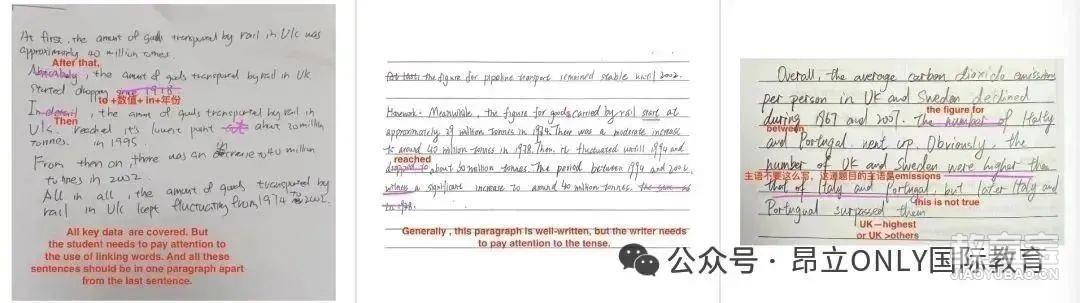 At first, the amount of goods transpored by rail in U/c was
approximately 40 million tonnes.
After that,
Noticeably, the amount of goods transpored by rail in UK
started dropping since 1978
to +数值+ in+年份
In detail, the amount of goods transported by rail in
Then
U/c. reached it's lowest point at about 20 million
tonnes. in 1995.
From then on, there was an increase to 40 million
tonnes in 2002.
All in all, the amount of goods transpored by
rail in U/c kept fluctuating from 1974 to 2002.
All key data are covered. But
the student needs to pay attention to
the use of linking words. And all these
sentences should be in one paragraph apart
from the last sentence.
the figure for pipeline transport remained stable until 2002.
Homework: Meanwhile, the figure for goods carried by rail start at
approximately 39 million tonnes in 1974. There was a moderate increase
to around 40 million tonnes in 1978. Then, it fluctuated until 1994 and
reached
dropped to about 30 million tonnes. The period between 1994 and 2002
witness a significant increase to around 40 million tonnes.
Generally , this paragraph is well-written, but the writer needs
to pay attention to the tense.
Overall, the average carbon dioxide emissions
per person in UK and Sweden declined
the figure for
during 1967 and 2007. The number of Italy
between
and Portugal went up. Obviously, the
number of UK and Sweden were higher than
主语不要这么写，这道题目的主语是emissions
that of Italy and Portugal, but later Italy and
this is not true
Portugual surpassed them
UK—highest
or UK >others
公众号 · 昂立ONLY国际教育
JIAOYUBAO.CN